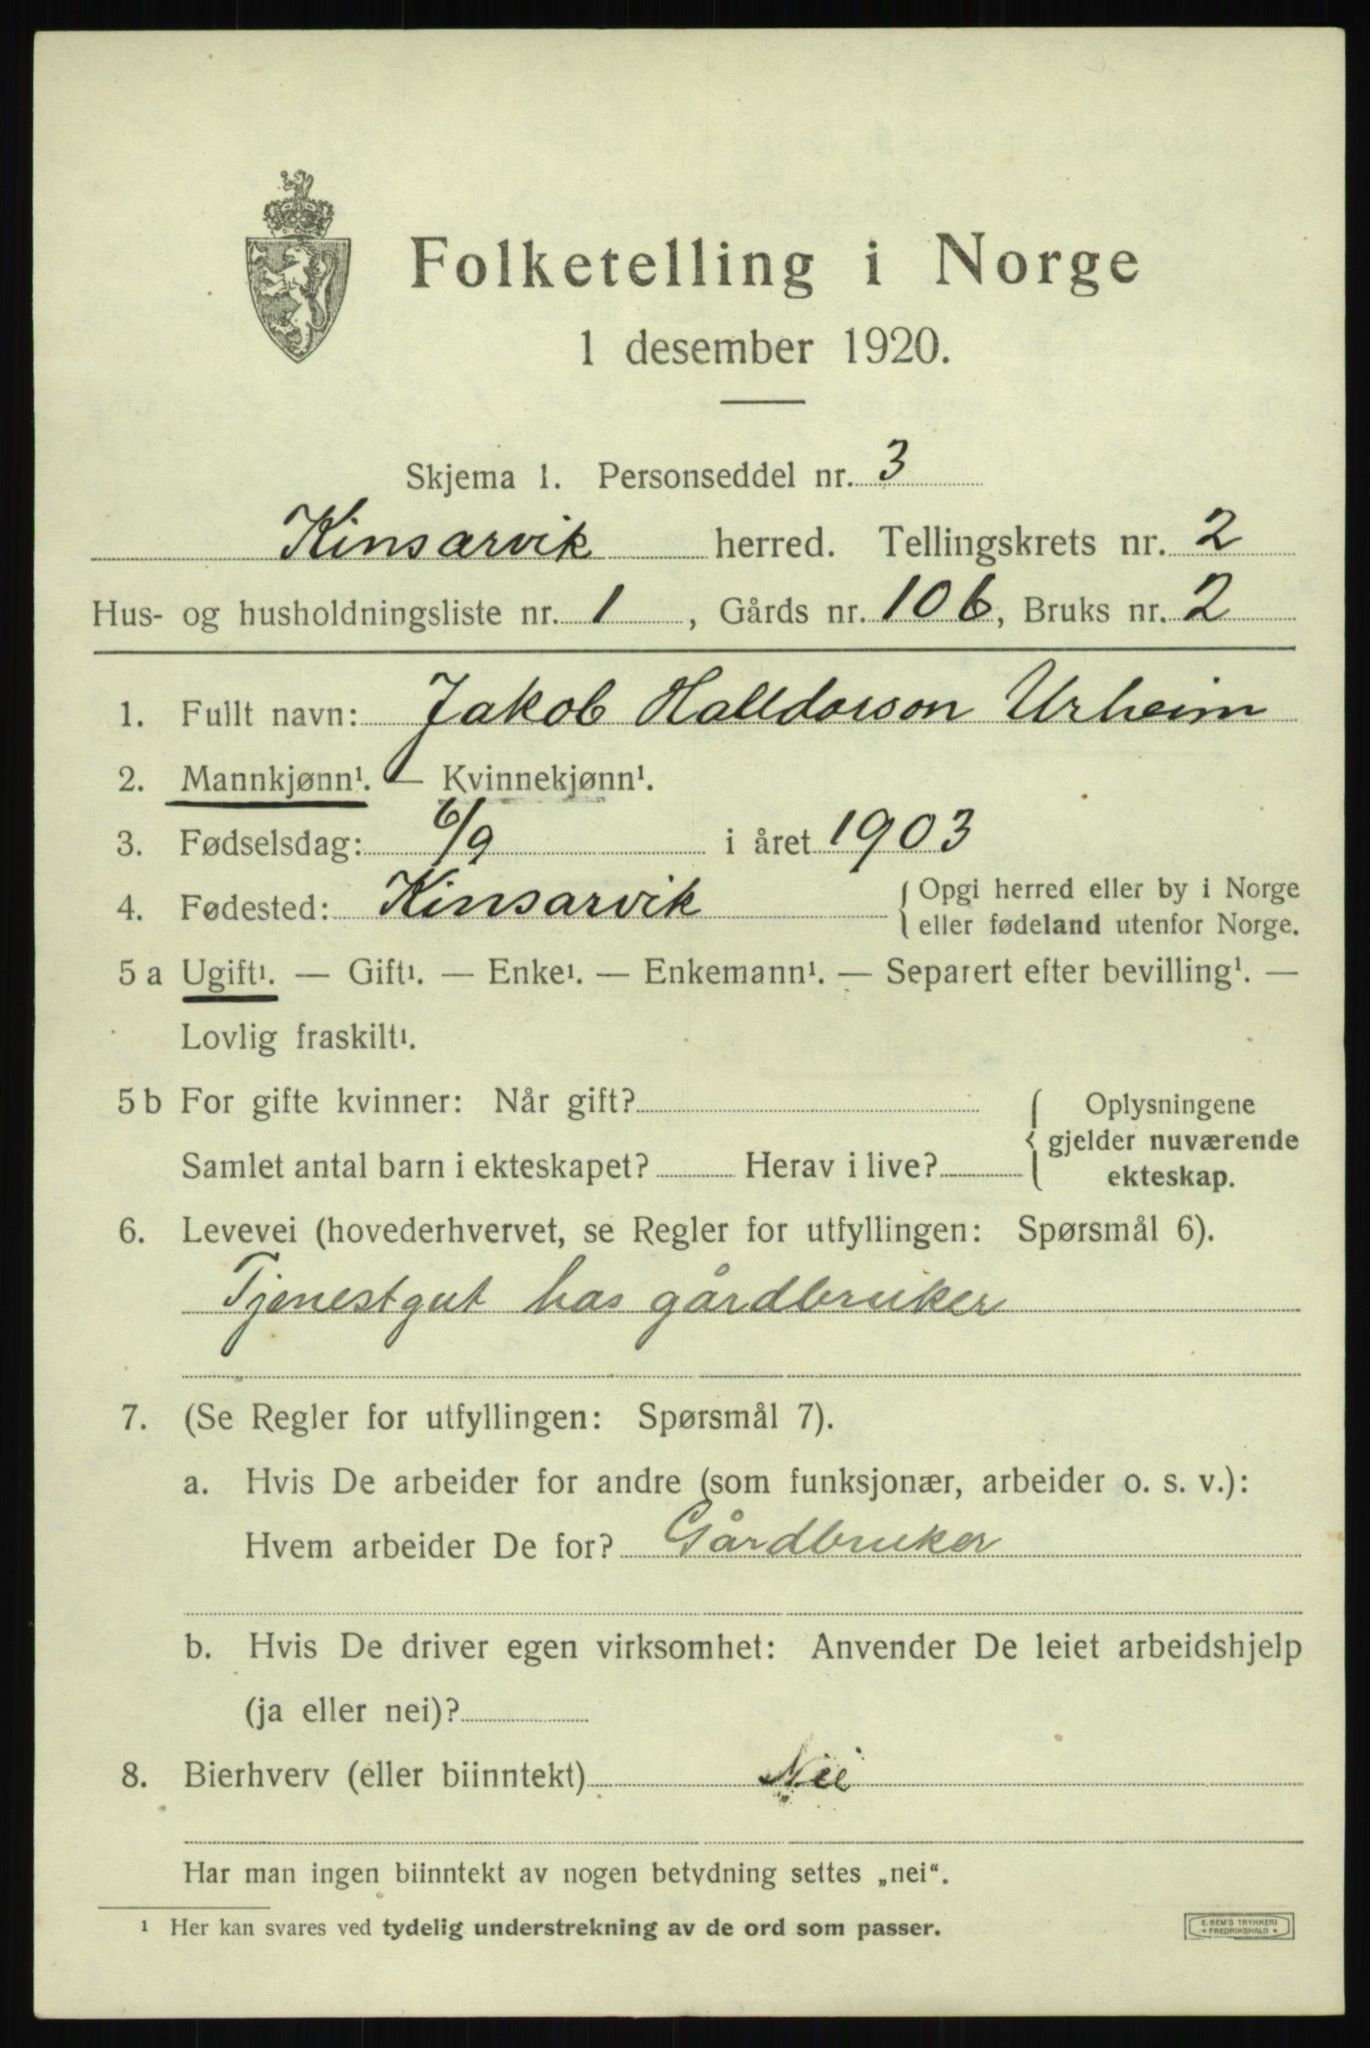 Folketelling i Norge
1 desember 1920.
Skjema 1. Personseddel nr. 3
Kinsarvik herred. Tellingskrets nr. 2
Hus- og husholdningsliste nr. 1, Gårds nr. 106, Bruks nr. 2
1. Fullt navn: Jakob Halldorson Urheim
2. Mannkjønn¹. — Kvinnekjønn¹.
3. Fødselsdag: 6/9 i året 1903
4. Fødested: Kinsarvik { Opgi herred eller by i Norge
eller fødeland utenfor Norge.
5 a Ugift¹. — Gift¹. — Enke¹. — Enkemann¹. — Separert efter bevilling¹. —
Lovlig fraskilt¹.
5 b For gifte kvinner: Når gift? { Oplysningene
gjelder nuværende
Samlet antal barn i ekteskapet? Herav i live? ekteskap.
6. Levevei (hovederhvervet, se Regler for utfyllingen: Spørsmål 6).
Tjenestgut hos gårdbruker
7. (Se Regler for utfyllingen: Spørsmål 7).
a. Hvis De arbeider for andre (som funksjonær, arbeider o. s. v.):
Hvem arbeider De for? Gårdbruker
b. Hvis De driver egen virksomhet: Anvender De leiet arbeidshjelp
(ja eller nei)?
8. Bierhverv (eller biinntekt) Nei
Har man ingen biinntekt av nogen betydning settes „nei“.
¹ Her kan svares ved tydelig understrekning av de ord som passer.
E. SEM'S TRYKKERI
* FREDRIKSHALD *